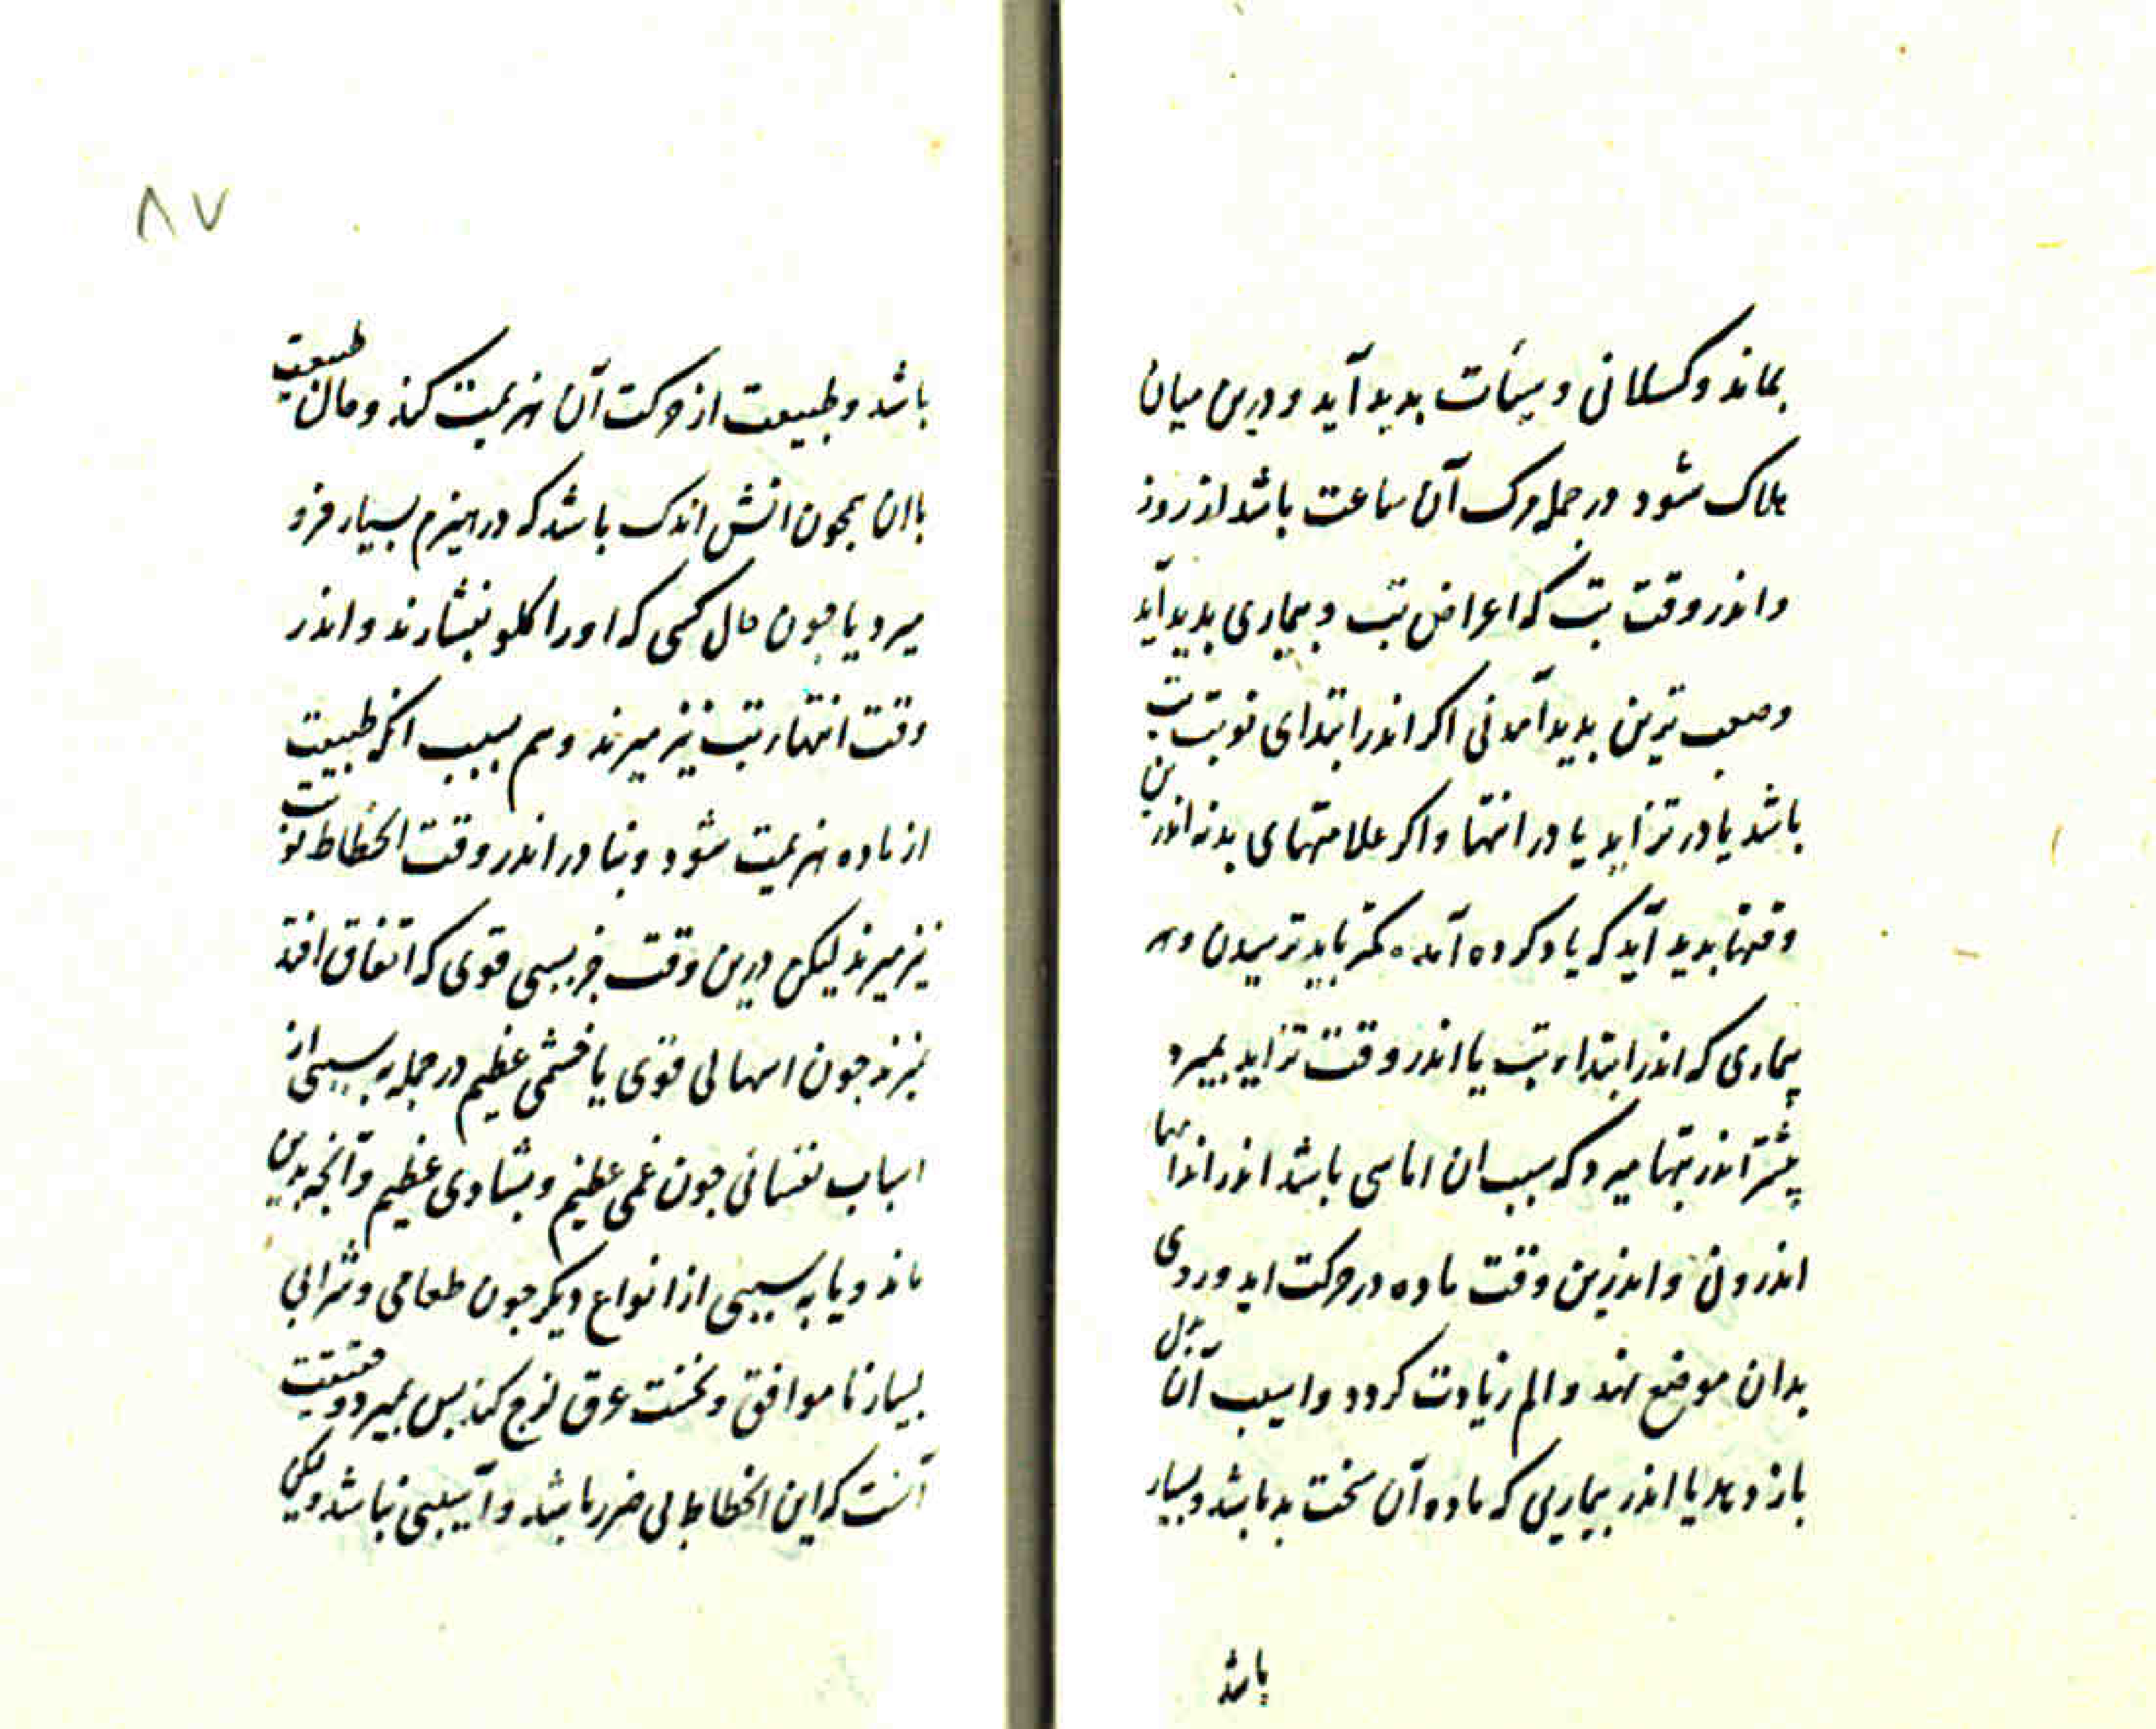 بماند و کسلانی و سبات بدید آید و درین میان
هلاک شود در جمله مرک آن ساعت باشد از روز
و اندر وقت تب که اعراض تب و بیماری بدید آید
و صعب ترین بدید آمدنی اکر اندر ابتدای نوبت تب
باشد یا در تزاید یا در انتها و اکر علامتهای بد نه اندرین
وقتها بدید آید که یاد کرده آمد کمتر باید ترسیدن و هر
بیماری که اندر ابتداء تب یا اندر وقت تزاید بمیرد
بیشتر اندر تبها میرد که سبب ان اماسی باشد اندر اندامها
اندرونی و اندرین وقت ماده در حرکت اید و روی
بدان موضع نهد و الم زیادت کردد و اسیب آن بدل
باز دهد یا اندر بیماریی که ماده آن سخت بد باشد و بسیار
باشد
۸۷
باشد و طبیعت از حرکت آن هزیمت کند و حال طبیعت
با ان همچون اتش اندک باشد که در هیزم بسیار فرو
میرد یا جون حال کسی که او را کلو بفشارند و اندر
وقت انتهاء تب نیز میرند و هم بسبب انکه طبیعت
از ماده هزیمت شود و بنادر اندر وقت انحطاط نوبت
نیز میرند لیکن درین وقت جز بسببی قوی که اتفاق افتد
نمیرند جون اسهالی قوی یا خشمی عظیم در جمله به سببی از
اسباب نفسانی جون غمی عظیم و بشادی عظیم و آنجه بدین
ماند و یا به سببی از انواع دیکر جون طعامی و شرابی
بسیار ناموافق و نخست عرق لزج کند بس بمیرد و حقیقت
آنست که این انحطاط بی ضرر باشد و آسیبی نباشد ولیکن